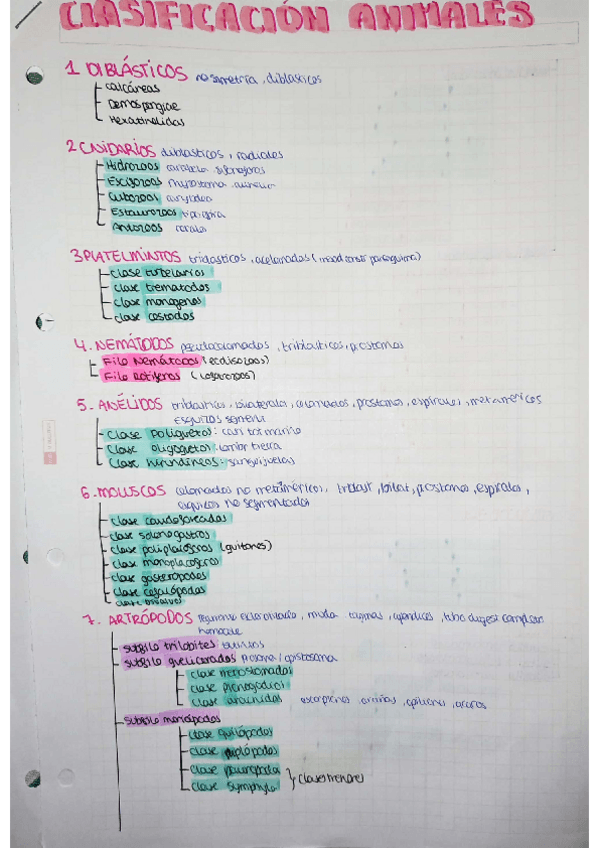 CLASIFICACIÓN ANIMALES
1 DIBLÁSTICOS no simetría, diblasticos
calcáreas
Demospongiae
Hexactinelidas
2 CNIDARIOS diblasticos, radiales
Hidrozoos carabela sifonoforos
Escifozoos
Cubozoos
Estaurozoos
Antozoos corales
3 PLATELMINTOS triblasticos, acelomados
clase turbelarios
clase trematodos
clase monogeneos
clase cestodos
4. NEMÁTODOS pseudocelomados, triblasticos, protostomos
Filo Nemátodos (ecdisozoos)
Filo Rotíferos
5. ANÉLIDOS triblasticos, bilaterales, celomados, protostomos, espirales, metamericos
clase poliquetos: marino
clase oligoquetos: lombriz tierra
clase hirundineos: sanguijuelas
6. MOLUSCOS celomados no metaméricos, triblast, bilat, protostomos, espirales,
esquizos no segmentados
clase caudofoveados
clase solenogastros
clase poliplacóforos (quitones)
clase monoplacoforos
clase gasterópodos
clase cefalópodos
clase bivalvos
7. ARTRÓPODOS muda apendices, tubo digest complejo
subfilo trilobites: extintos
subfilo quelicerados prosoma/opistosoma
clase merostomados
clase picnogónidos
clase arácnidos escorpiones arañas, opiliones, ácaros
subfilo miriápodos
clase quilópodos
clase diplópodos
clase pauropoda
clase symphyla
(clases menores)